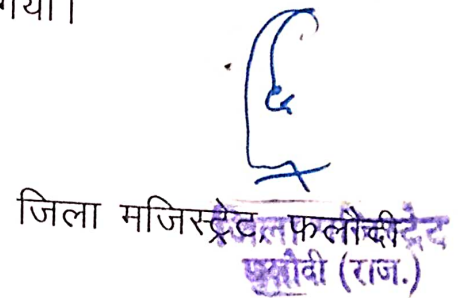 गया।
जिला मजिस्ट्रेट, फलौदी
फलोदी (राज.)